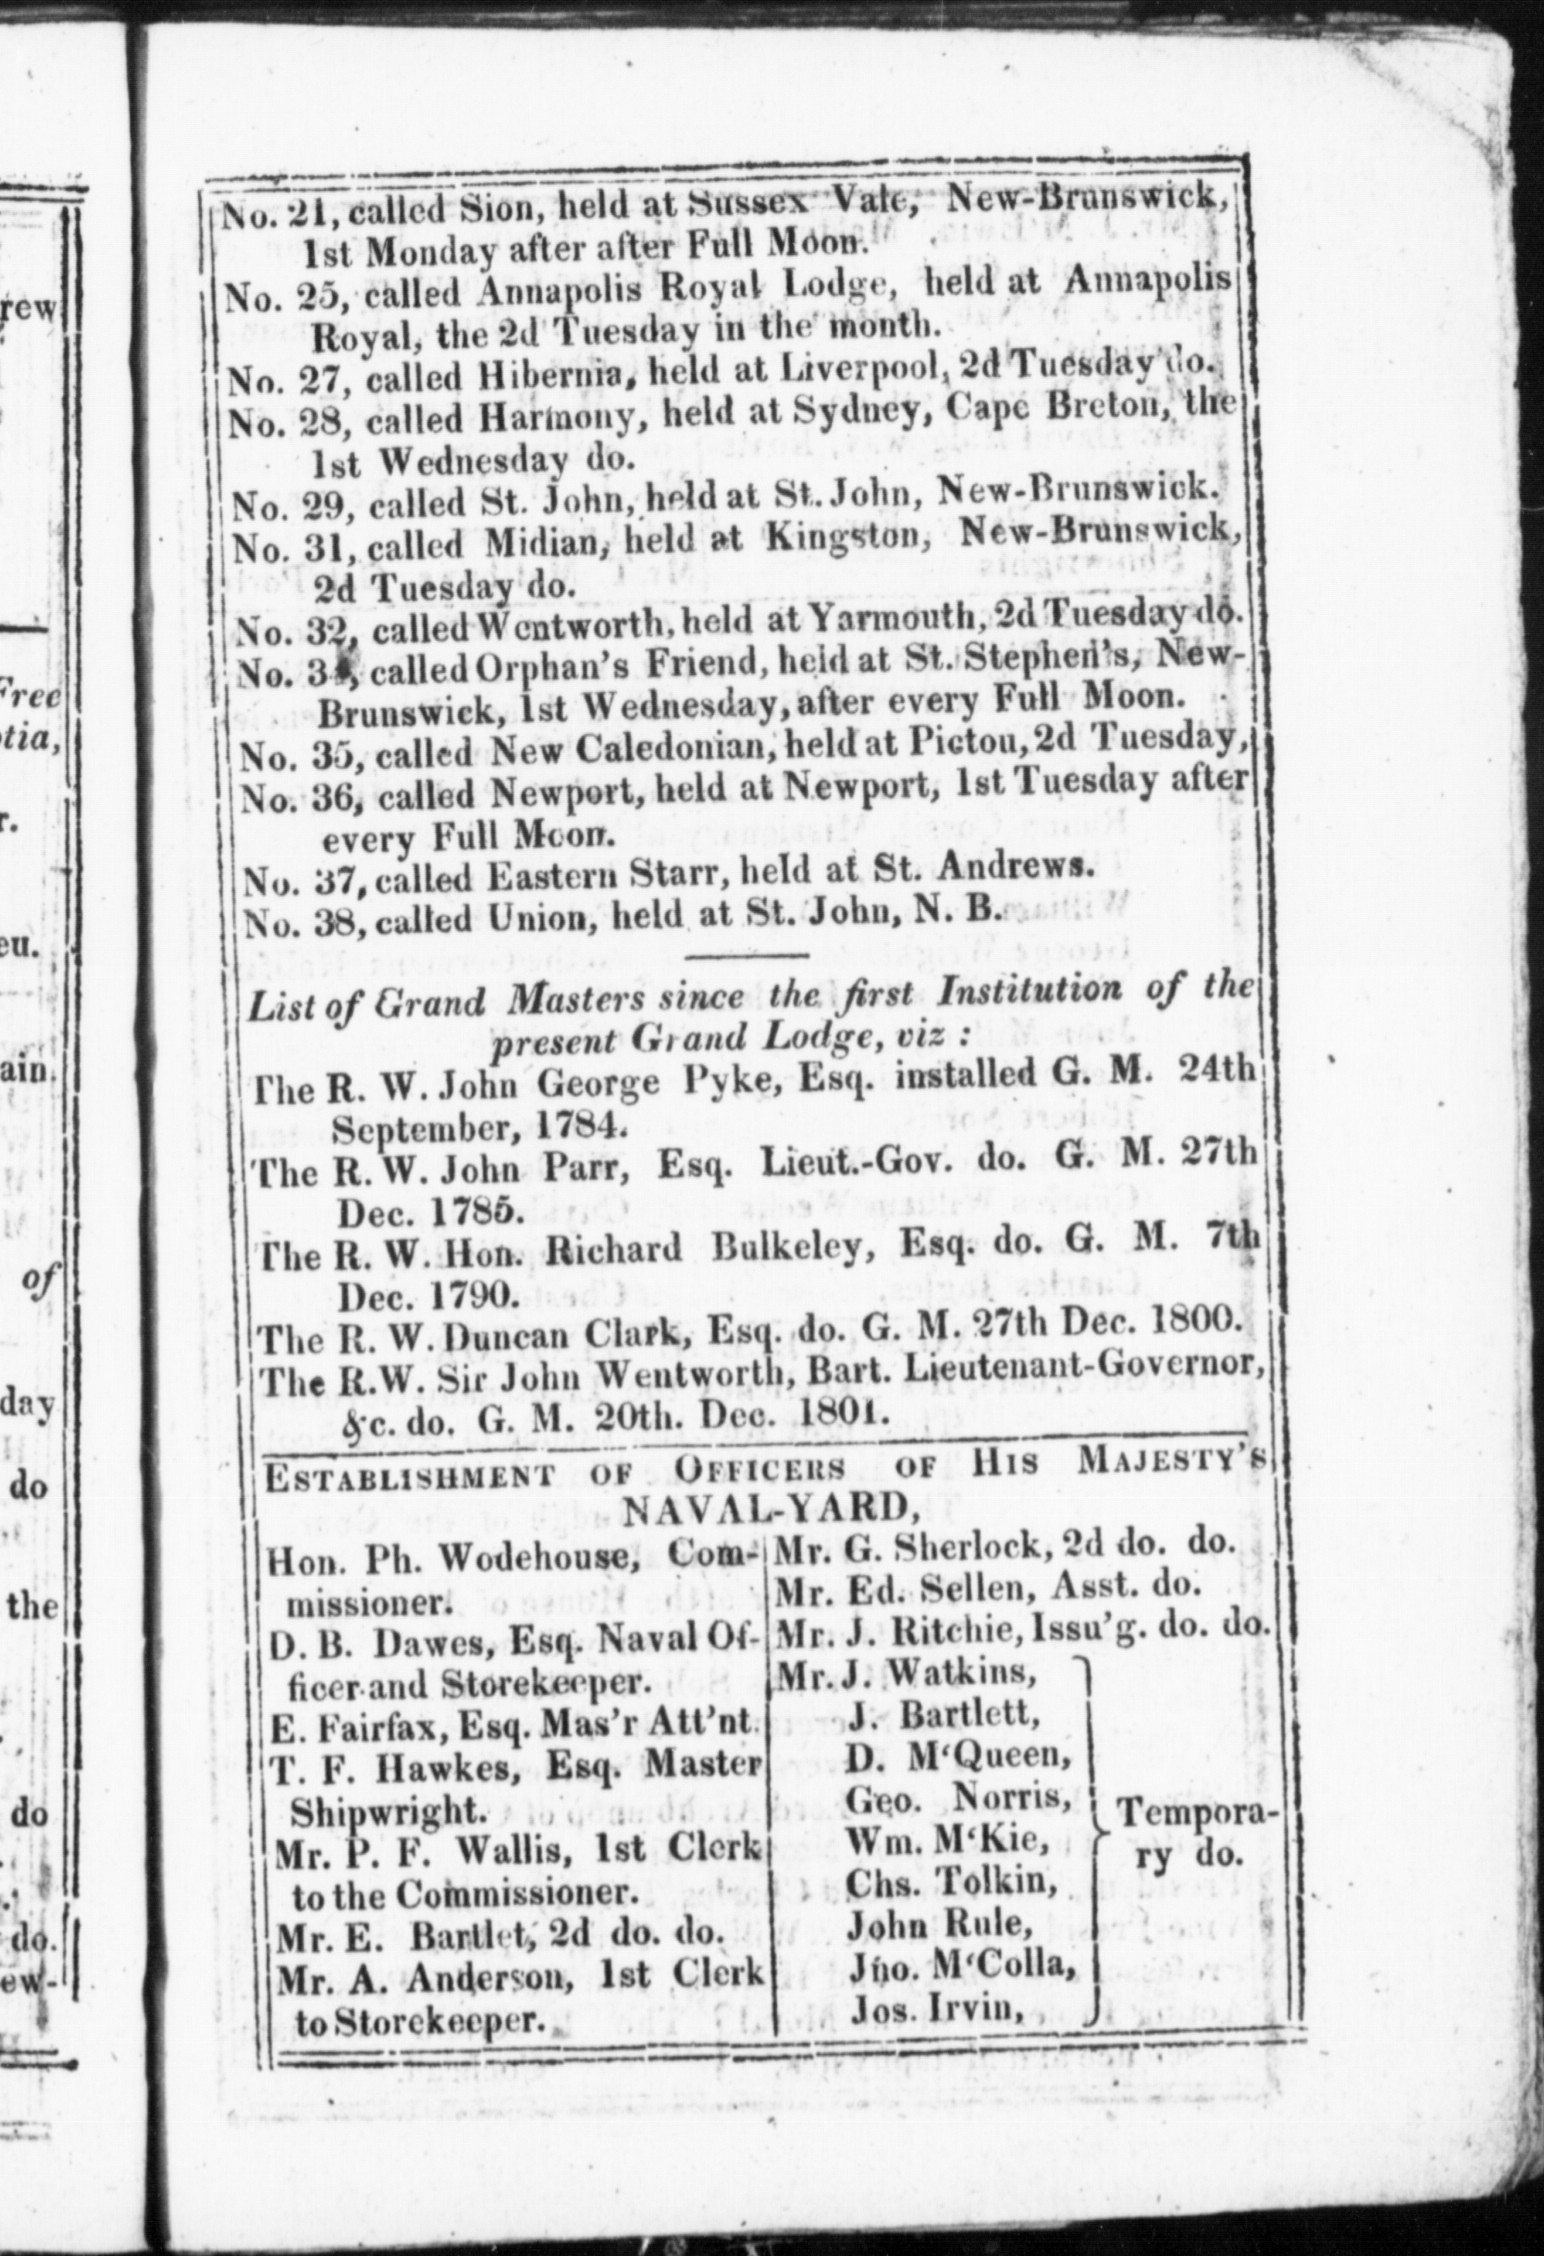 No. 21, called Sion, held at Sussex Vale, New-Brunswick,
1st Monday after after Full Moon.
No. 25, called Annapolis Royal Lodge, held at Annapolis
Royal, the 2d Tuesday in the month.
No. 27, called Hibernia, held at Liverpool, 2d Tuesday do.
No. 28, called Harmony, held at Sydney, Cape Breton, the
1st Wednesday do.
No. 29, called St. John, held at St. John, New-Brunswick.
No. 31, called Midian, held at Kingston, New-Brunswick,
2d Tuesday do.
No. 32, called Wentworth, held at Yarmouth, 2d Tuesday do.
No. 34, called Orphan's Friend, held at St. Stephen's, New-
Brunswick, 1st Wednesday, after every Full Moon.
No. 35, called New Caledonian, held at Pictou, 2d Tuesday,
No. 36, called Newport, held at Newport, 1st Tuesday after
every Full Moon.
No. 37, called Eastern Starr, held at St. Andrews.
No. 38, called Union, held at St. John, N. B.
List of Grand Masters since the first Institution of the
present Grand Lodge, viz :
The R. W. John George Pyke, Esq. installed G. M. 24th
September, 1784.
The R. W. John Parr, Esq. Lieut.-Gov. do. G. M. 27th
Dec. 1785.
The R. W. Hon. Richard Bulkeley, Esq. do. G. M. 7th
Dec. 1790.
The R. W. Duncan Clark, Esq. do. G. M. 27th Dec. 1800.
The R.W. Sir John Wentworth, Bart. Lieutenant-Governor,
&c. do. G. M. 20th. Dec. 1801.
ESTABLISHMENT OF OFFICERS OF HIS MAJESTY'S
NAVAL-YARD,
Hon. Ph. Wodehouse, Com-
missioner.
D. B. Dawes, Esq. Naval Of-
ficer and Storekeeper.
E. Fairfax, Esq. Mas'r Att'nt.
T. F. Hawkes, Esq. Master
Shipwright.
Mr. P. F. Wallis, 1st Clerk
to the Commissioner.
Mr. E. Bartlet, 2d do. do.
Mr. A. Anderson, 1st Clerk
to Storekeeper.
Mr. G. Sherlock, 2d do. do.
Mr. Ed. Sellen, Asst. do.
Mr. J. Ritchie, Issu'g. do. do.
Mr. J. Watkins,
J. Bartlett,
D. M'Queen,
Geo. Norris,
Wm. M'Kie,
Chs. Tolkin,
John Rule,
Jno. M'Colla,
Jos. Irvin,
Tempora-
ry do.